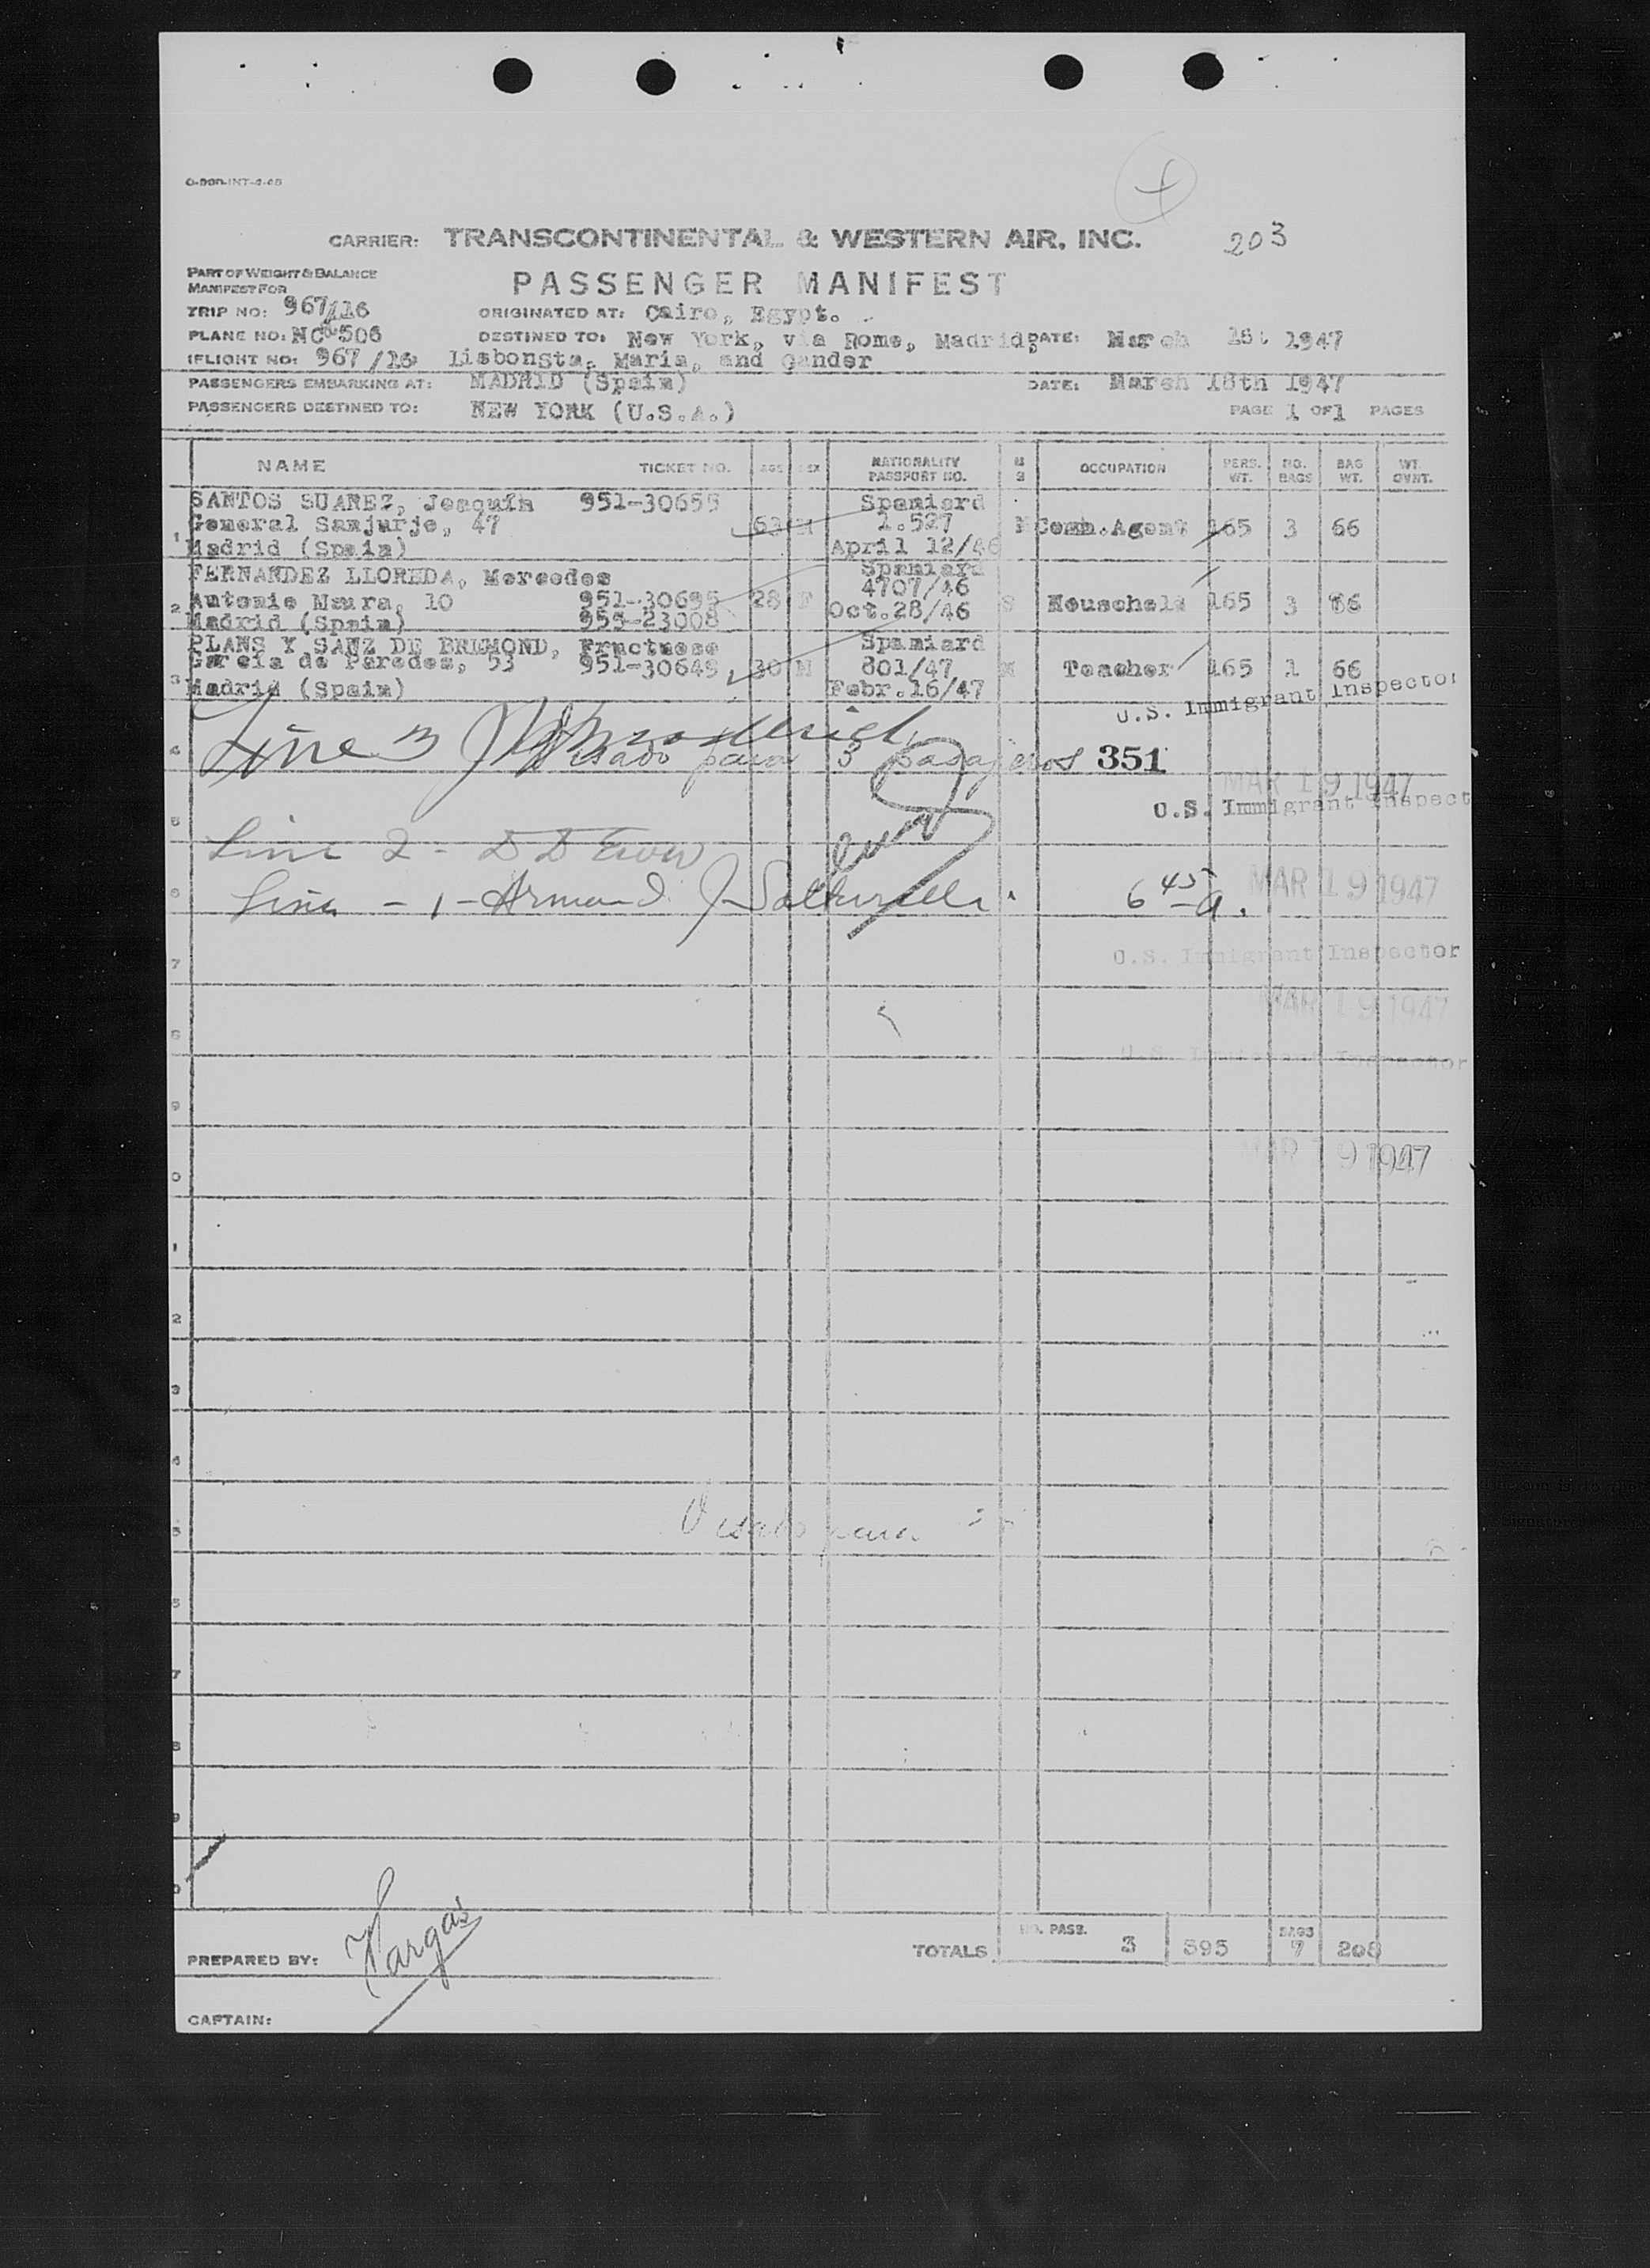 203
CARRIER: TRANSCONTINENTAL & WESTERN AIR, INC.
PART OF WEIGHT & BALANCE
MANIFEST FOR
PASSENGER MANIFEST
TRIP NO: 967/16 ORIGINATED AT: Cairo, Egypt.
PLANE NO: NC 506 DESTINED TO: New York, via Rome, Madrid, DATE: March 1947
FLIGHT NO: 967/16 Lisbonsta, Maria, and Gander
PASSENGERS EMBARKING AT: MADRID (Spain) DATE: March 18th 1947
PASSENGERS DESTINED TO: NEW YORK (U.S.A.) PAGE 1 OF 1 PAGES
NAME TICKET NO. AGE SEX NATIONALITY PASSPORT NO. M S OCCUPATION PERS. WT. NO. BAGS BAG WT. WT. OVHT.
SANTOS SUAREZ, Joaquín 951-30655 Spaniard
General Sanjurjo, 47 63 M 1.527 M Comm.Agent 165 3 66
1 Madrid (Spain) April 12/46
FERNANDEZ LLOREDA, Mercedes Spaniard
4707/46
2 Antonio Maura, 10 951-30695 28 F Oct.28/46 S Household 165 3 66
Madrid (Spain) 955-23008
PLANS Y SANZ DE BREMOND, Fructuoso Spaniard
Garcia de Paredes, 53 951-30645 30 M 801/47 Teacher 165 1 66
3 Madrid (Spain) Febr.16/47
U.S. Immigrant Inspector
Line 3
Visado para 3 pasajeros 351
MAR 19 1947
U.S. Immigrant Inspect
Line 2 -
Line - 1 - Armand J 6 45 a.
MAR 19 1947
U.S. Immigrant Inspector
MAR 19 1947
U.S. Immigrant Inspector
MAR 19 1947
Visado para
TOTALS NO. PASS. 3 595 BAGS 7 208
PREPARED BY: Vargas
CAPTAIN: